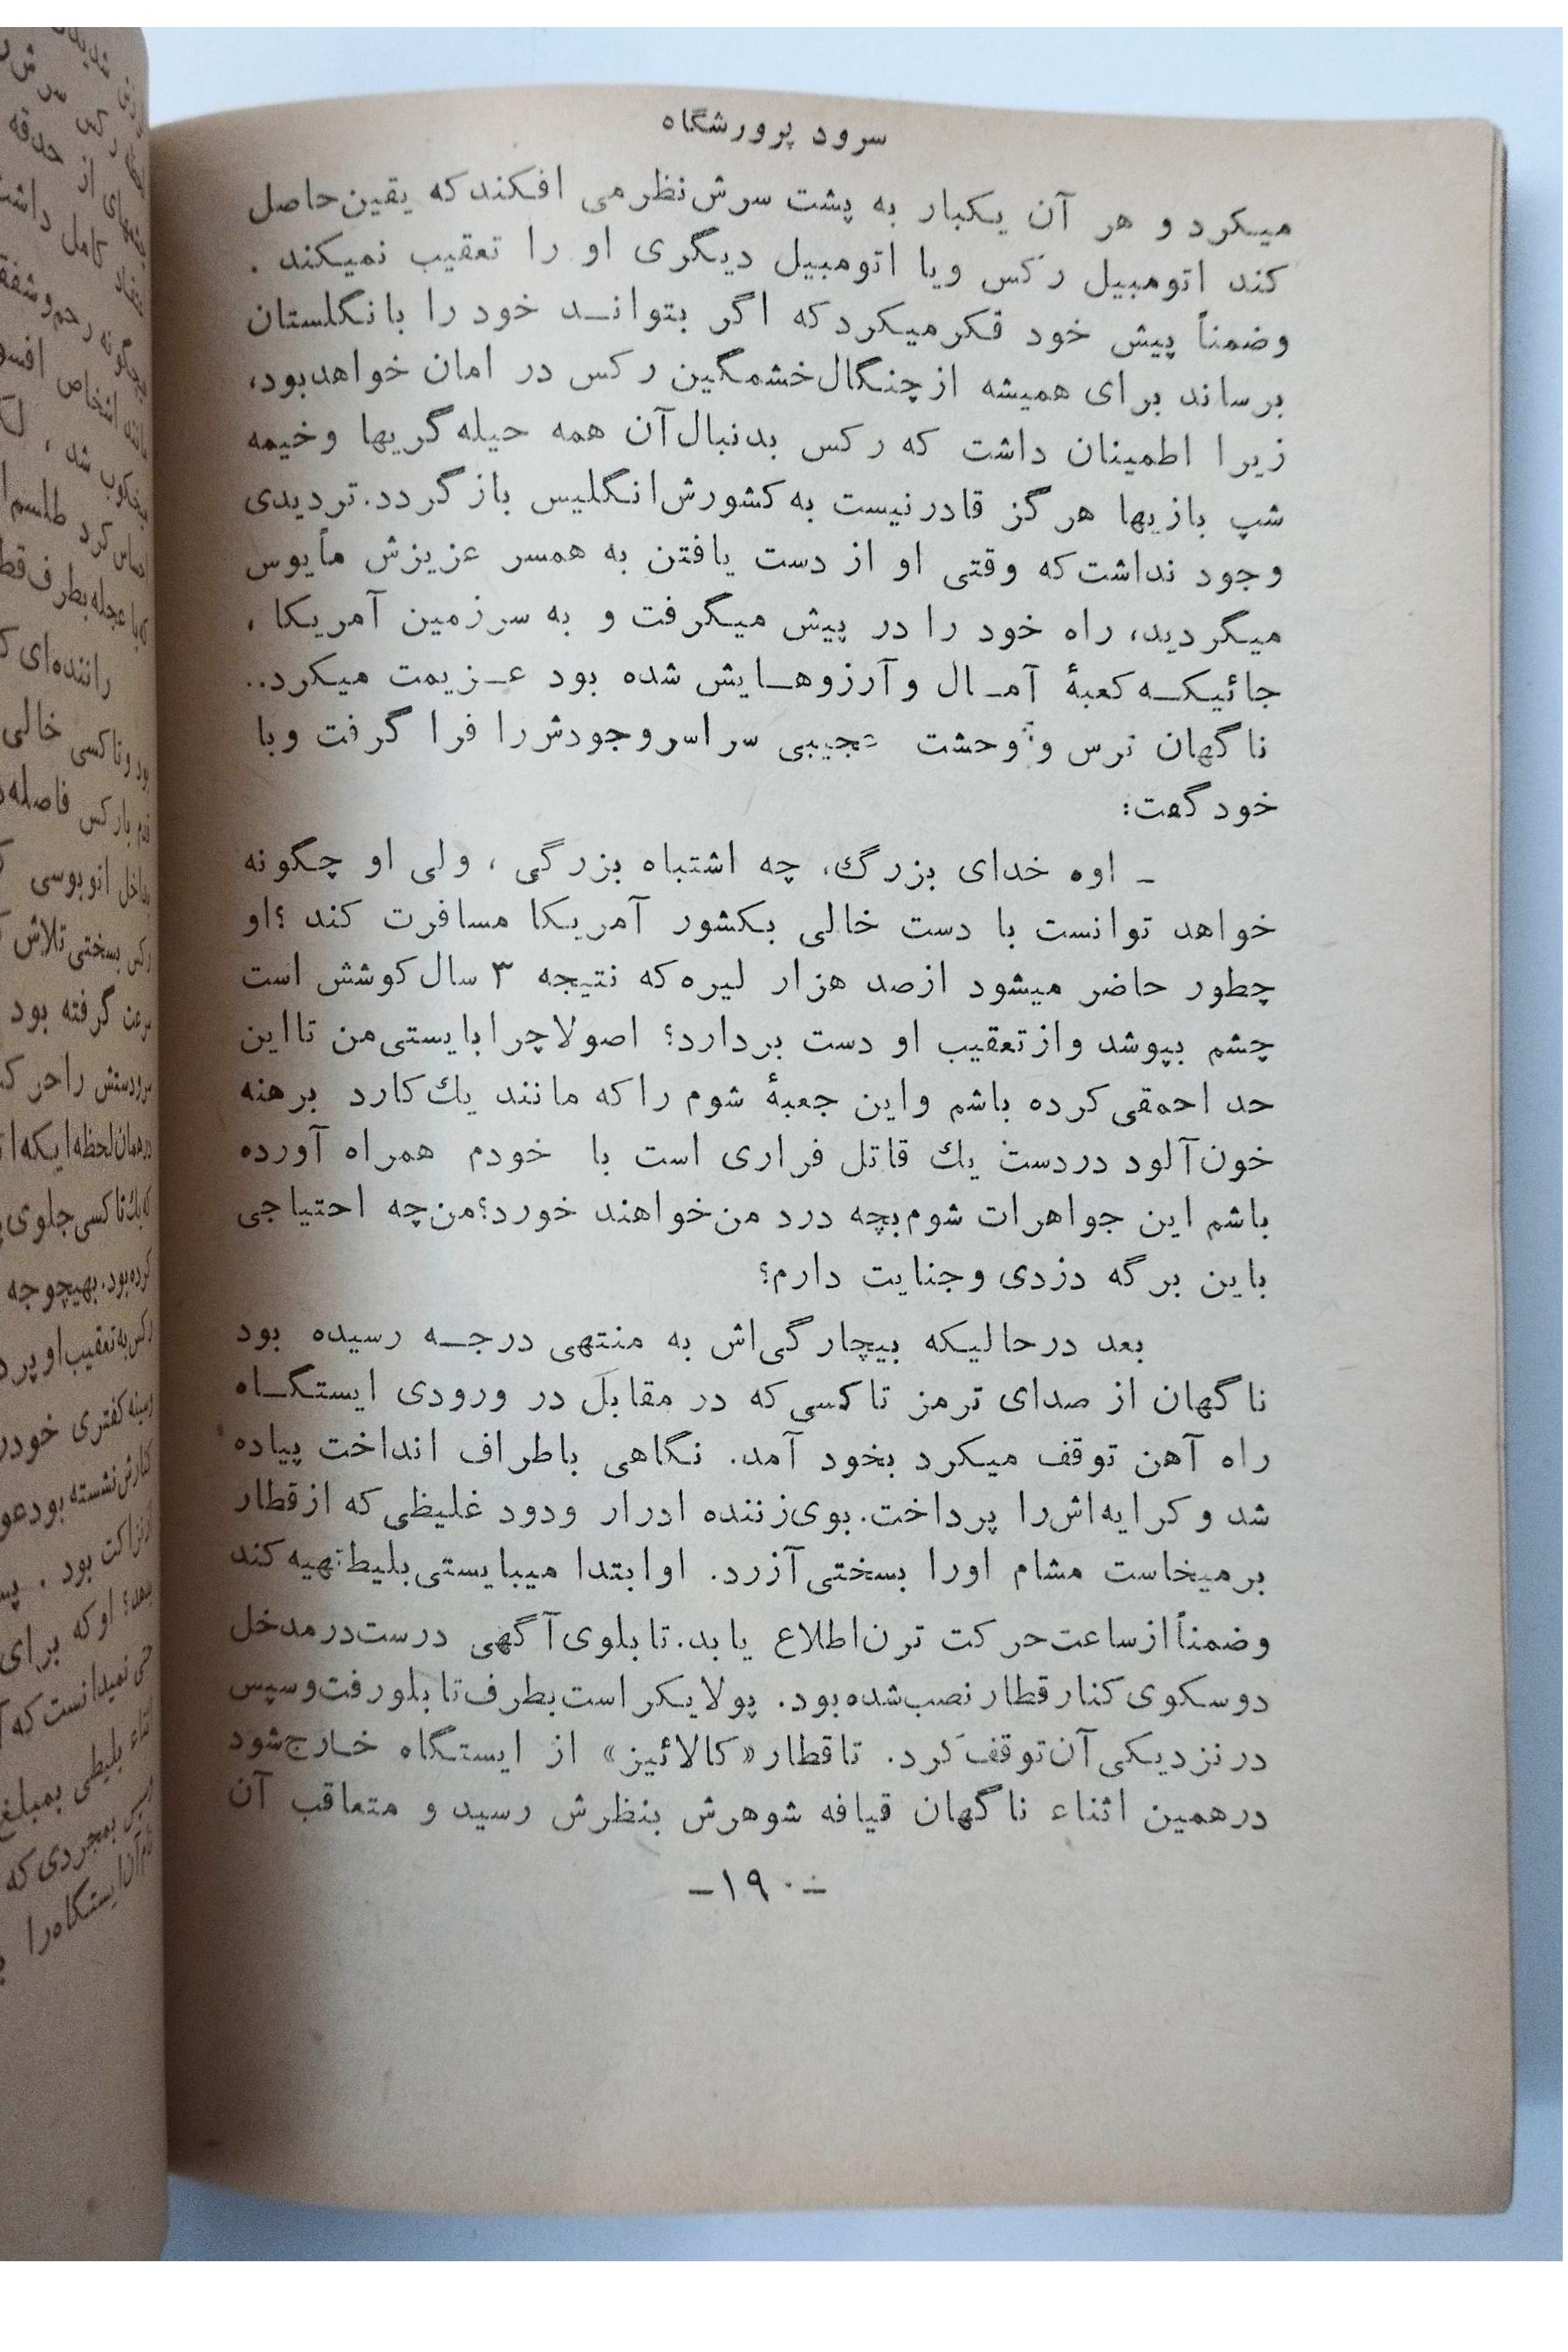 سرود پرورشگاه
میکرد و هر آن یکبار به پشت سرش نظر می افکند که یقین حاصل
کند اتومبیل رکس ویا اتومبیل دیگری او را تعقیب نمیکند .
وضمناً پیش خود فکر میکرد که اگر بتواند خود را بانگلستان
برساند برای همیشه از چنگال خشمگین رکس در امان خواهد بود،
زیرا اطمینان داشت که رکس بدنبال آن همه حیله گریها وخیمه
شپ بازیها هرگز قادر نیست به کشورش انگلیس باز گردد. تردیدی
وجود نداشت که وقتی او از دست یافتن به همسر عزیزش مأیوس
میگردید، راه خود را در پیش میگرفت و به سرزمین آمریکا ،
جائیکه کعبهٔ آمال و آرزوهایش شده بود عزیمت میکرد..
ناگهان ترس و وحشت عجیبی سراسر وجودش را فرا گرفت وبا
خود گفت:
ـ اوه خدای بزرگ، چه اشتباه بزرگی ، ولی او چگونه
خواهد توانست با دست خالی بکشور آمریکا مسافرت کند ؟ او
چطور حاضر میشود از صد هزار لیره که نتیجه ۳ سال کوشش است
چشم بپوشد واز تعقیب او دست بردارد؟ اصولا چرا بایستی من تا این
حد احمقی کرده باشم واین جعبهٔ شوم را که مانند یك کارد برهنه
خون آلود در دست یك قاتل فراری است با خودم همراه آورده
باشم این جواهرات شوم بچه درد من خواهند خورد؟ من چه احتیاجی
باین برگه دزدی وجنایت دارم؟
بعد در حالیکه بیچارگی اش به منتهی درجه رسیده بود
ناگهان از صدای ترمز تاکسی که در مقابل در ورودی ایستگاه
راه آهن توقف میکرد بخود آمد. نگاهی باطراف انداخت پیاده
شد و کرایه اش را پرداخت. بوی زننده ادرار ودود غلیظی که از قطار
برمیخاست مشام اورا بسختی آزرد. او ابتدا میبایستی بلیط تهیه کند
وضمناً از ساعت حرکت ترن اطلاع یابد. تابلوی آگهی درست در مدخل
دو سکوی کنار قطار نصب شده بود. پولا یکراست بطرف تابلو رفت و سپس
در نزدیکی آن توقف کرد. تا قطار «کالائیز» از ایستگاه خارج شود
در همین اثناء ناگهان قیافه شوهرش بنظرش رسید و متعاقب آن
ـ۱۹۰ـ